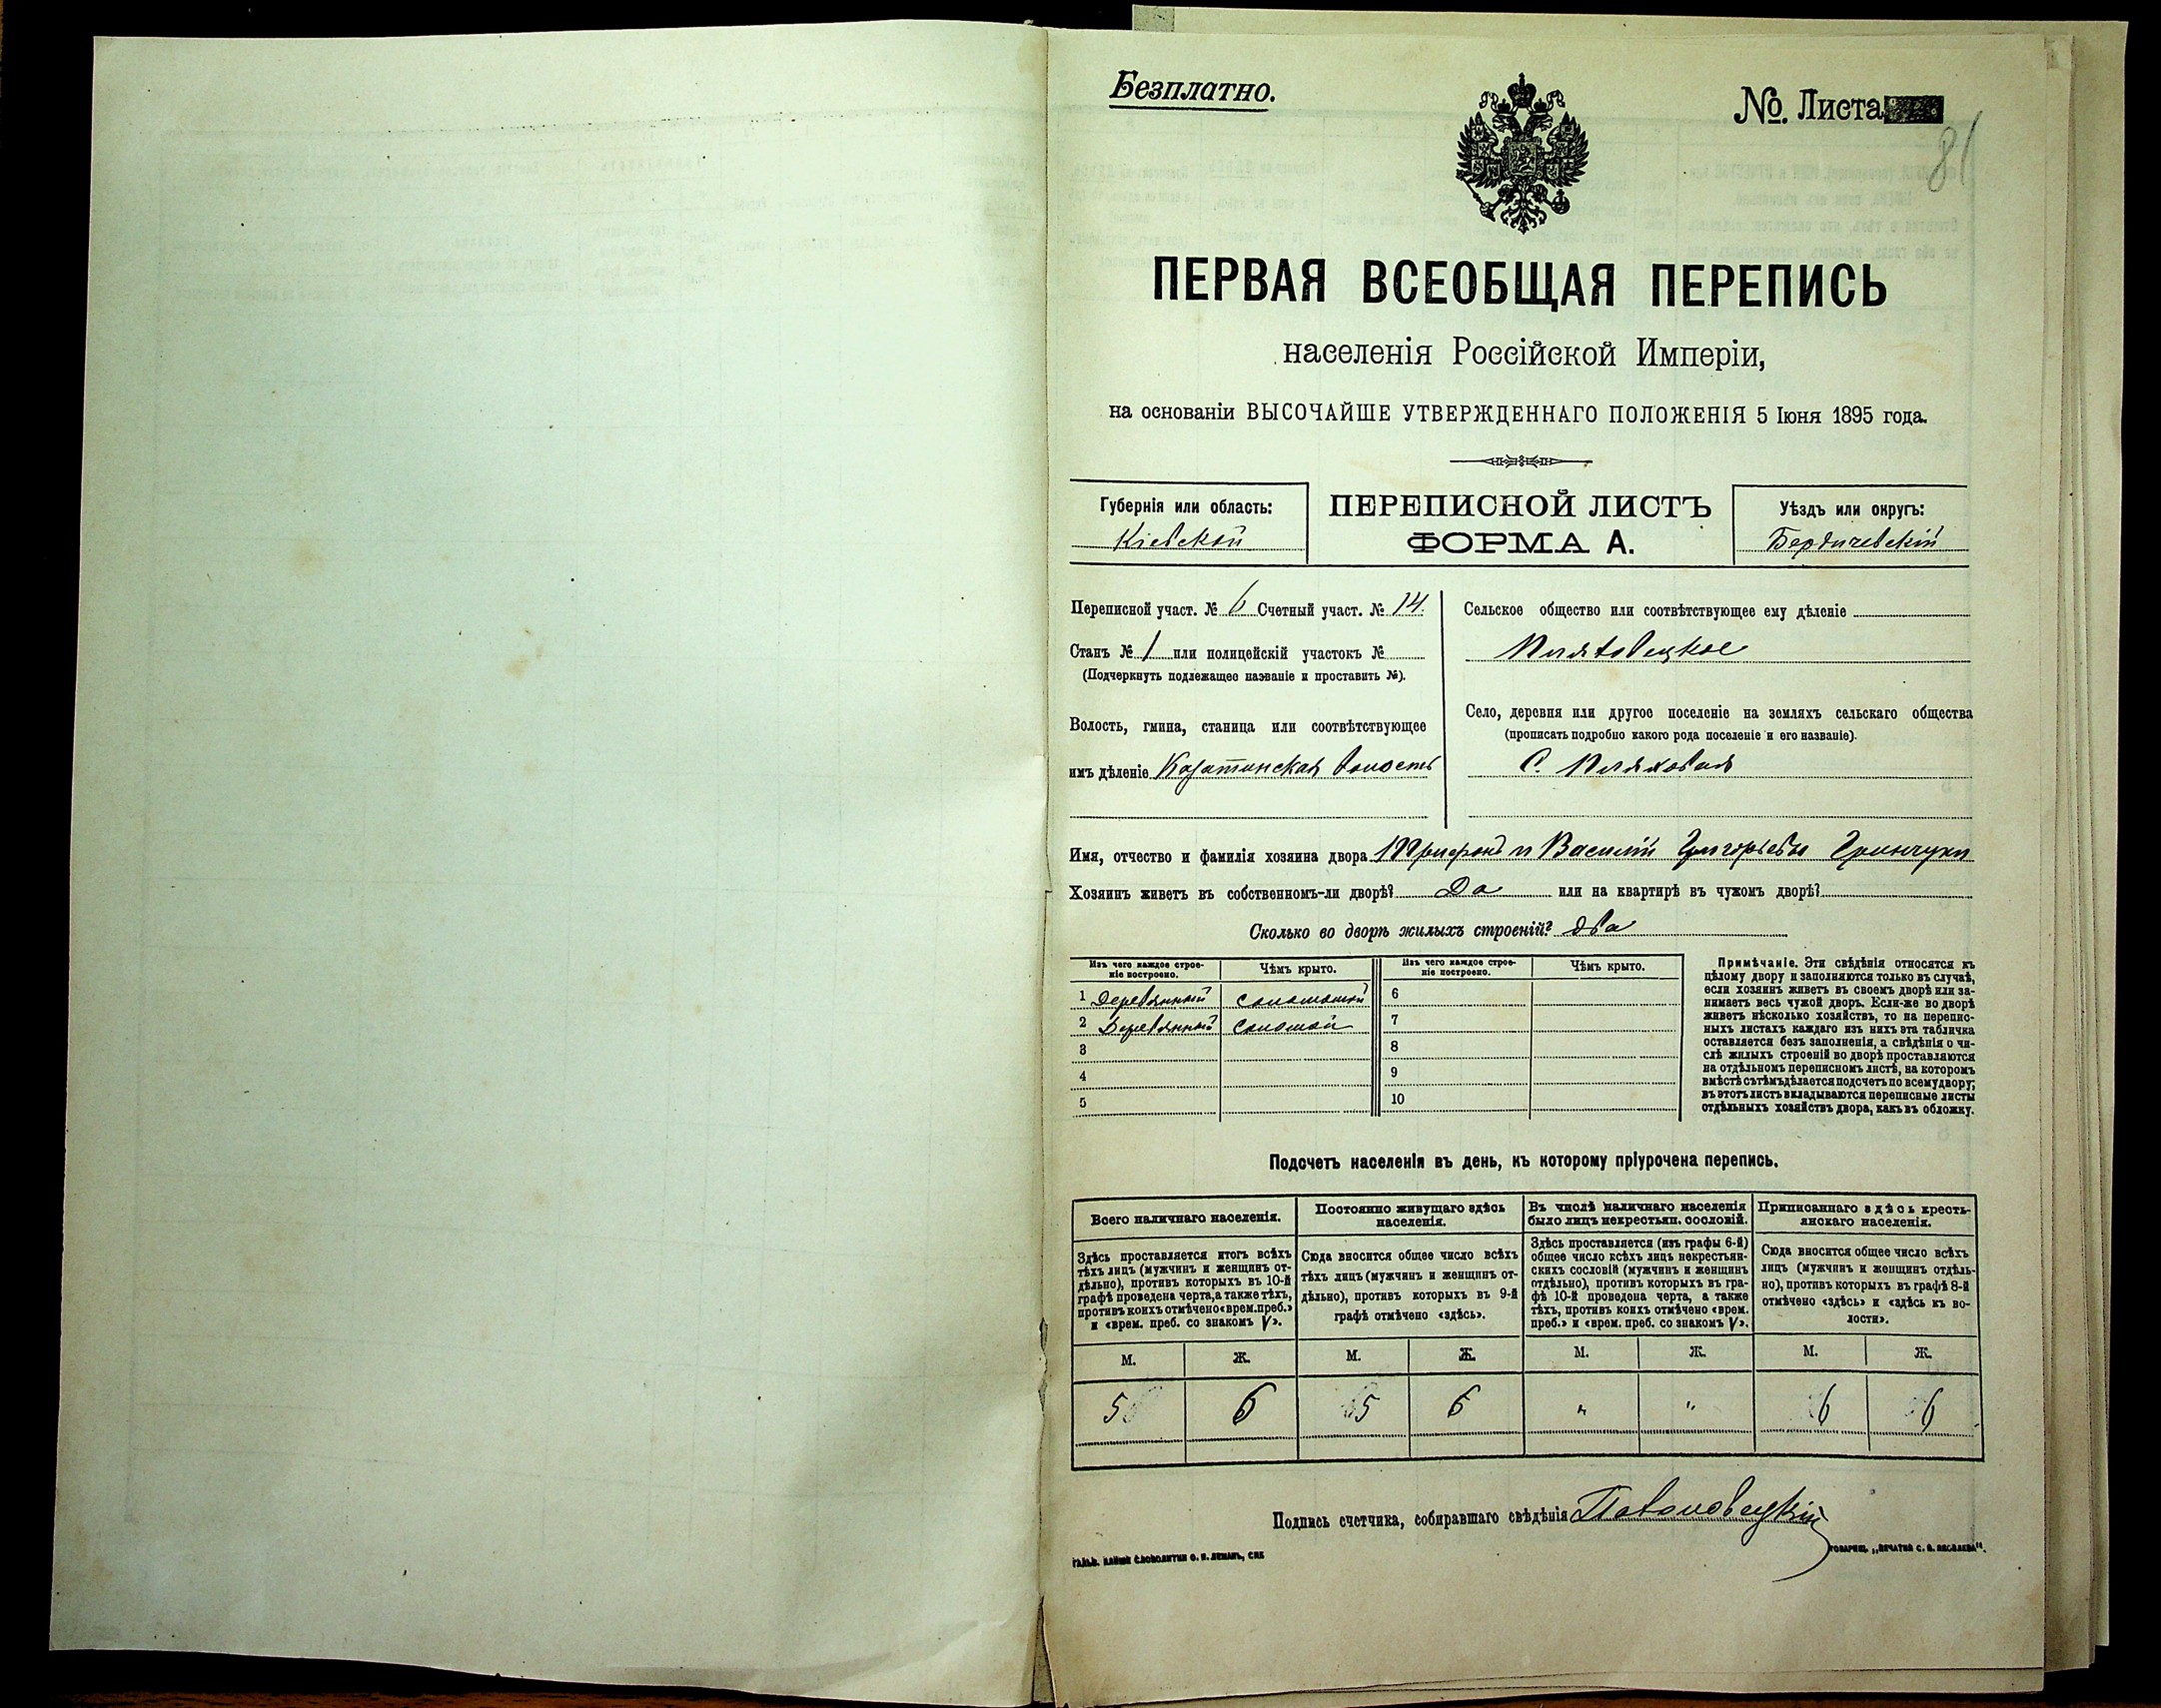 Безплатно.
№. Листа
81
ПЕРВАЯ ВСЕОБЩАЯ ПЕРЕПИСЬ
населенія Россійской Имперіи,
на основаніи ВЫСОЧАЙШЕ УТВЕРЖДЕННАГО ПОЛОЖЕНІЯ 5 Іюня 1895 года.
Губернія или область:
Кіевской
ПЕРЕПИСНОЙ ЛИСТЪ
ФОРМА А.
Уѣздъ или округъ:
Бердичевскій
Переписной участ. № 6 Счетный участ. № 14.
Станъ № 1 или полицейскій участокъ №
(Подчеркнуть подлежащее названіе и проставить №).
Волость, гмина, станица или соотвѣтствующее
имъ дѣленіе Козатинская волость
Сельское общество или соотвѣтствующее ему дѣленіе
Пляховецкое
Село, деревня или другое поселеніе на земляхъ сельскаго общества
(прописать подробно какого рода поселеніе и его названіе).
С. Пляховая
Имя, отчество и фамилія хозяина двора Трифонъ и Василій Григорьевы Гринчуки
Хозяинъ живетъ въ собственномъ-ли дворѣ? Да или на квартирѣ въ чужомъ дворѣ?
Сколько во дворѣ жилыхъ строеній? два
Изъ чего каждое строе-
ніе построено.
Чѣмъ крыто.
Изъ чего каждое строе-
ніе построено.
Чѣмъ крыто.
1 Деревянный соломой 6
2 Деревянный соломой 7
3 8
4 9
5 10
Примѣчаніе. Эти свѣдѣнія относятся къ
цѣлому двору и заполняются только въ случаѣ,
если хозяинъ живетъ въ своемъ дворѣ или за-
нимаетъ весь чужой дворъ. Если-же во дворѣ
живетъ нѣсколько хозяйствъ, то на перепис-
ныхъ листахъ каждаго изъ нихъ эта табличка
оставляется безъ заполненія, а свѣдѣнія о чи-
слѣ жилыхъ строеній во дворѣ проставляются
на отдѣльномъ переписномъ листѣ, на которомъ
вмѣстѣ съ тѣмъ дѣлается подсчетъ по всему двору;
въ этотъ листъ вкладываются переписные листы
отдѣльныхъ хозяйствъ двора, какъ въ обложку.
Подсчетъ населенія въ день, къ которому пріурочена перепись.
Всего наличнаго населенія.
Здѣсь проставляется итогъ всѣхъ
тѣхъ лицъ (мужчинъ и женщинъ от-
дѣльно), противъ которыхъ въ 10-й
графѣ проведена черта, а также тѣхъ,
противъ коихъ отмѣчено «врем. преб.»
и «врем. преб. со знакомъ V».
Постоянно живущаго здѣсь
населенія.
Сюда вносится общее число всѣхъ
тѣхъ лицъ (мужчинъ и женщинъ от-
дѣльно), противъ которыхъ въ 9-й
графѣ отмѣчено «здѣсь».
Въ числѣ наличнаго населенія
было лицъ некрестьян. сословій.
Здѣсь проставляется (изъ графы 6-й)
общее число всѣхъ лицъ некрестьян-
скихъ сословій (мужчинъ и женщинъ
отдѣльно), противъ которыхъ въ гра-
фѣ 10-й проведена черта, а также
тѣхъ, противъ коихъ отмѣчено «врем.
преб.» и «врем. преб. со знакомъ V».
Приписаннаго здѣсь кресть-
янскаго населенія.
Сюда вносится общее число всѣхъ
лицъ (мужчинъ и женщинъ отдѣль-
но), противъ которыхъ въ графѣ 8-й
отмѣчено «здѣсь» и «здѣсь къ во-
лости».
М. Ж. М. Ж. М. Ж. М. Ж.
5 6 5 6 " " 6 6
Подпись счетчика, собиравшаго свѣдѣнія